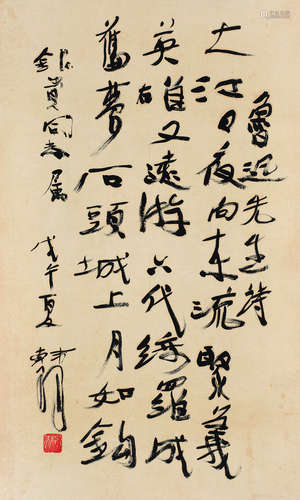 魯迅先生詩
大江日夜向東流 聚義
英雄又遠游 六代綺羅成
舊夢 石頭城上月如鈎
貴同志屬 戊午夏 韓羽